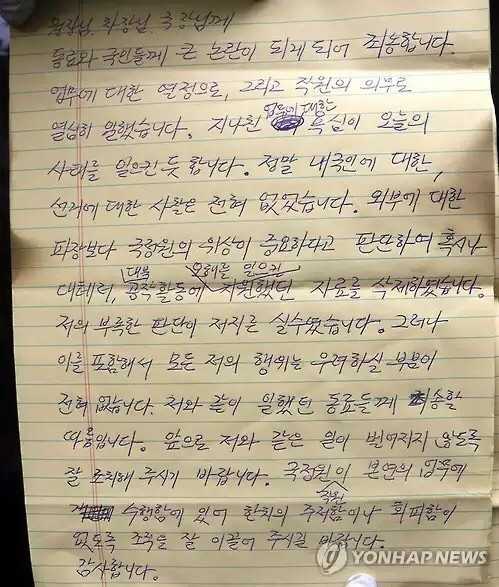 원장님, 차장님, 국장님께
동료와 국민들께 큰 논란이 되게 되어 죄송합니다.
업무에 대한 열정으로, 그리고 직원의 의무로
열심히 일했습니다. 지나친 업무에 대한 욕심이 오늘의
사태를 일으킨 듯 합니다. 정말 내국인에 대한,
선거에 대한 사찰은 전혀 없었습니다. 외부에 대한
파장보다 국정원의 위상이 중요하다고 판단하여 혹시나
대테러, 대북 공작활동에 오해를 일으킬 지원했던 자료를 삭제하였습니다.
저의 부족한 판단이 저지른 실수였습니다. 그러나
이를 포함해서 모든 저의 행위는 우려하실 부분이
전혀 없습니다. 저와 같이 일했던 동료들께 죄송할
따름입니다. 앞으로 저와 같은 일이 벌어지지 않도록
잘 조치해 주시기 바랍니다. 국정원 직원이 본연의 업무에
수행함에 있어 한치의 주저함이나 회피함이
없도록 조직을 잘 이끌어 주시길 바랍니다.
감사합니다.
YONHAP NEWS